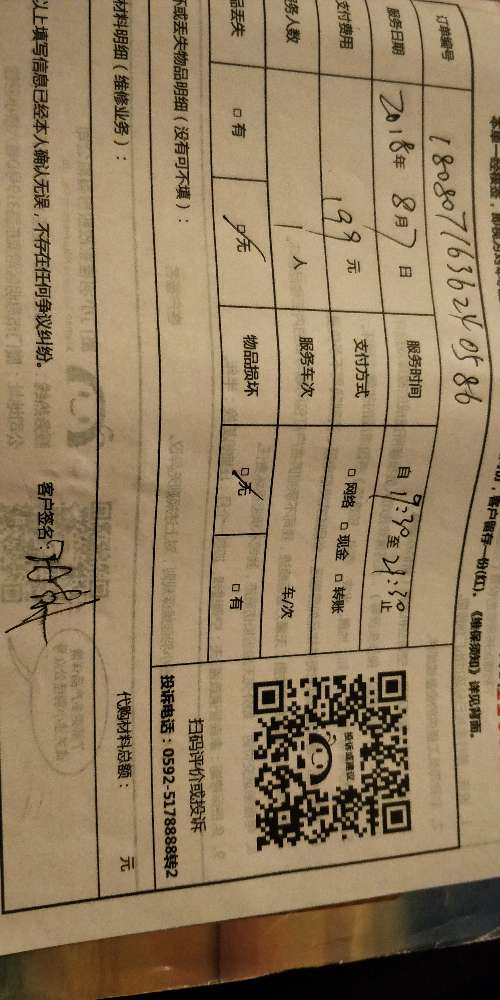 客户留存一份(红)。《维保须知》详见背面。
订单编号 1808071636240586
服务日期 2018年 8月7日 服务时间 自 19:30 至 21:30 止
支付费用 199 元 支付方式 □ 网络 □ 现金 □ 转账
务人数 1 人 服务车次 车/次
品丢失 □ 有 □ 无 物品损坏 □ 无 □ 有
坏或丢失物品明细(没有可不填):
投诉或建议
扫码评价或投诉
投诉电话:0592-5178888转2
材料明细(维修业务):
代购材料总额: 元
以上填写信息已经本人确认无误,不存在任何争议纠纷。 客户签名: